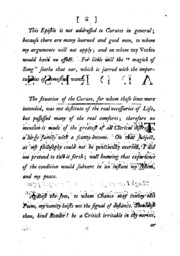 [ ii ]
This Epistle is not addressed to Curates in general;
because there are many learned and good men, to whom
my arguments will not apply; and on whom my Verses
would have no effect. For little will the "magick of
Song" soothe that ear, which is jarred with the impor-
tunities of domestic want.
The situation of the Curate, for whom these lines were
intended, was not destitute of the real necessaries of Life,
but possessed many of the real comforts; therefore no
mention is made of the greatest of all Clerical
a large Family with a scanty Income. On that subject,
as my philosophy could not be practically exerted, I did
not pretend to talk it forth; well knowing that experience
of the condition would subvert in an instant my
and my peace.
Against the Jew, to whom Chance may
Poem, my vanity hoists not the signal of defiance.
thou, kind Reader! be a Critick irritable in thy nerves,
or